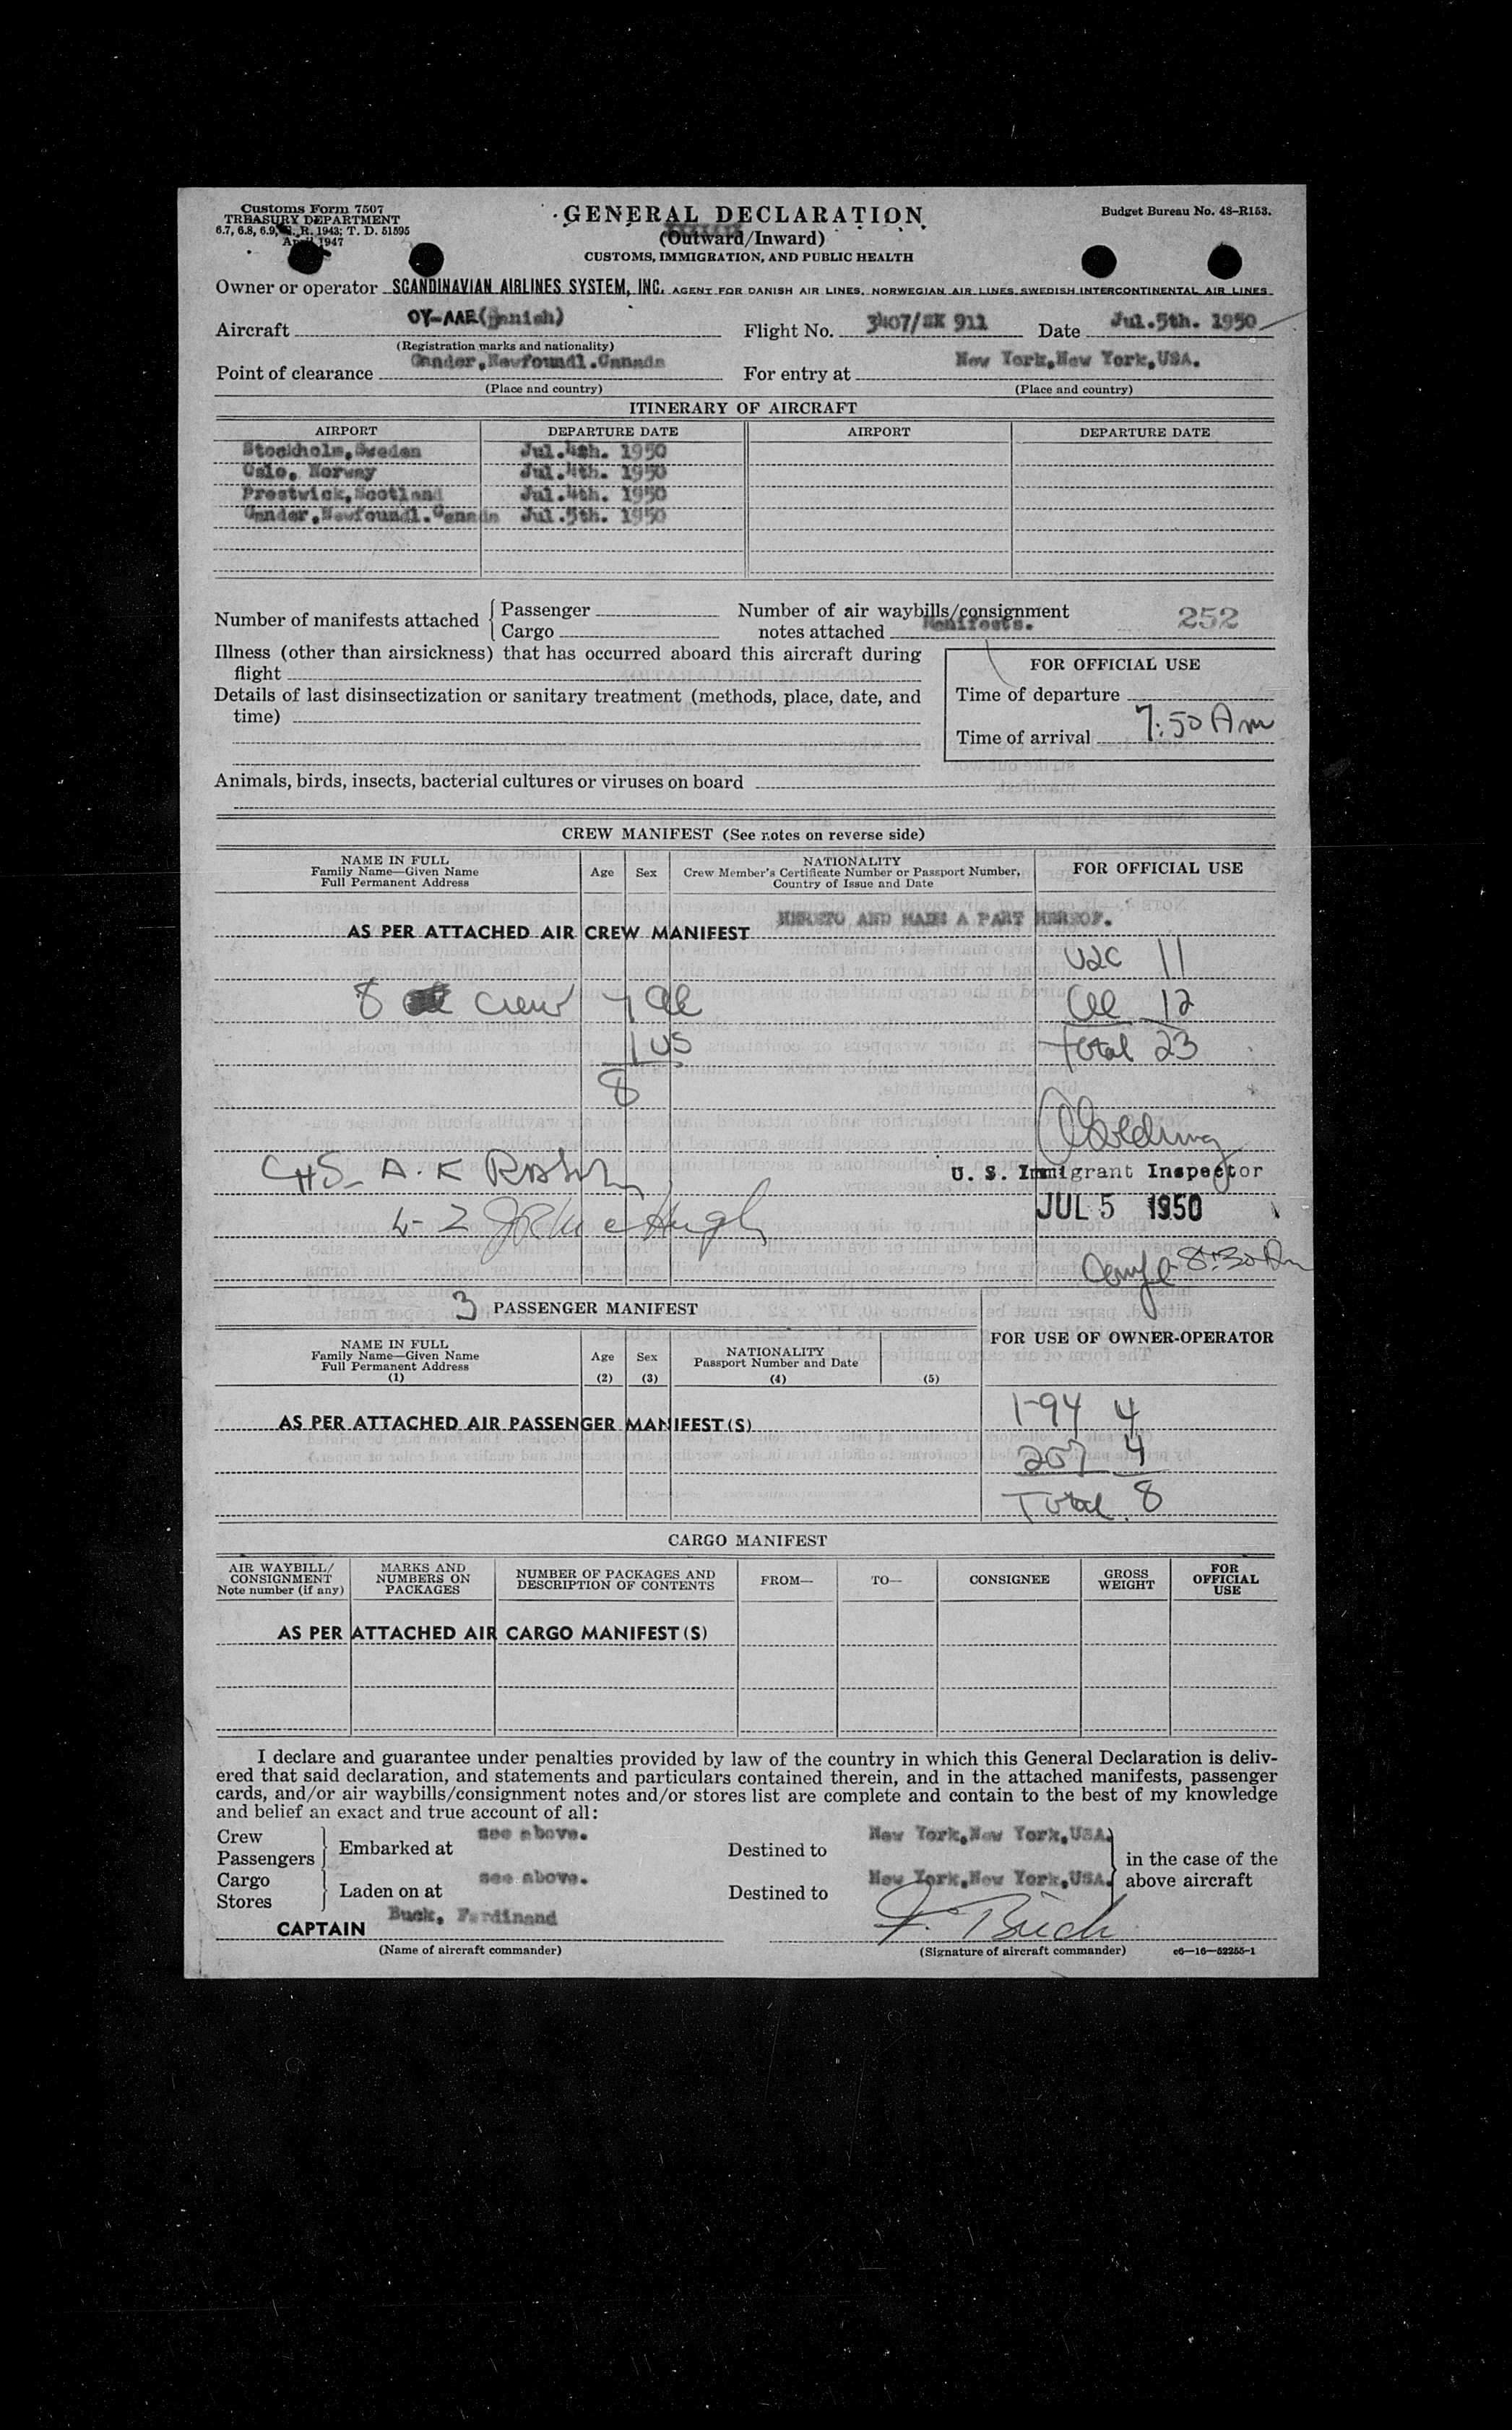 Customs Form 7507
TREASURY DEPARTMENT
6.7, 6.8, 6.9, C. R. 1943; T. D. 51595
April 1947
GENERAL DECLARATION
(Outward/Inward)
CUSTOMS, IMMIGRATION, AND PUBLIC HEALTH
Budget Bureau No. 48-R153.
Owner or operator SCANDINAVIAN AIRLINES SYSTEM, INC. AGENT FOR DANISH AIR LINES, NORWEGIAN AIR LINES, SWEDISH INTERCONTINENTAL AIR LINES
Aircraft OY-AAE(Danish) Flight No. 3407/SK 911 Date Jul.5th. 1950
(Registration marks and nationality)
Point of clearance Gander,Newfoundl.Canada For entry at New York,New York,USA.
(Place and country) (Place and country)
ITINERARY OF AIRCRAFT
AIRPORT DEPARTURE DATE AIRPORT DEPARTURE DATE
Stockholm,Sweden Jul.4th. 1950
Oslo, Norway Jul.4th. 1950
Prestwick,Scotland Jul.4th. 1950
Gander,Newfoundl.Canada Jul.5th. 1950
Number of manifests attached { Passenger
Cargo
Number of air waybills/consignment
notes attached Manifests. 252
Illness (other than airsickness) that has occurred aboard this aircraft during
flight
Details of last disinsectization or sanitary treatment (methods, place, date, and
time)
FOR OFFICIAL USE
Time of departure
Time of arrival 7:50 Am
Animals, birds, insects, bacterial cultures or viruses on board
CREW MANIFEST (See notes on reverse side)
NAME IN FULL
Family Name—Given Name
Full Permanent Address
Age Sex
NATIONALITY
Crew Member's Certificate Number or Passport Number,
Country of Issue and Date
FOR OFFICIAL USE
HERETO AND MADE A PART HEREOF.
AS PER ATTACHED AIR CREW MANIFEST
USC 11
8 crew 7 al
al 12
1 US
Total 23
8
U. S. Immigrant Inspector
A. K
JUL 5 1950
8:30 Am
3 PASSENGER MANIFEST
NAME IN FULL
Family Name—Given Name
Full Permanent Address
(1)
Age
(2)
Sex
(3)
NATIONALITY
Passport Number and Date
(4) (5)
FOR USE OF OWNER-OPERATOR
I-94 4
AS PER ATTACHED AIR PASSENGER MANIFEST(S)
257 4
Total 8
CARGO MANIFEST
AIR WAYBILL/
CONSIGNMENT
Note number (if any)
MARKS AND
NUMBERS ON
PACKAGES
NUMBER OF PACKAGES AND
DESCRIPTION OF CONTENTS
FROM— TO— CONSIGNEE
GROSS
WEIGHT
FOR
OFFICIAL
USE
AS PER ATTACHED AIR CARGO MANIFEST(S)
I declare and guarantee under penalties provided by law of the country in which this General Declaration is deliv-
ered that said declaration, and statements and particulars contained therein, and in the attached manifests, passenger
cards, and/or air waybills/consignment notes and/or stores list are complete and contain to the best of my knowledge
and belief an exact and true account of all:
Crew
Passengers } Embarked at see above. Destined to New York,New York,USA.
Cargo
Stores } Laden on at see above. Destined to New York,New York,USA.
in the case of the
above aircraft
CAPTAIN Buck, Ferdinand
(Name of aircraft commander) (Signature of aircraft commander) c6—16—52255-1